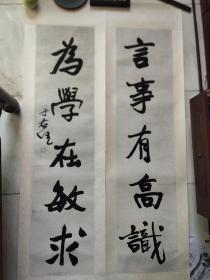 言事有高識
為學在敏求
于右任